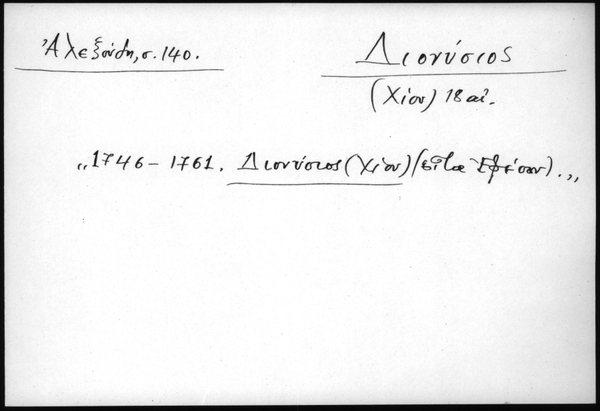 Ἀλεξούδη, σ. 140.
Διονύσιος
(Χίου) 18 αἰ.
„1746 – 1761. Διονύσιος (Χίου) (εἶτα Ἐφέσου).„